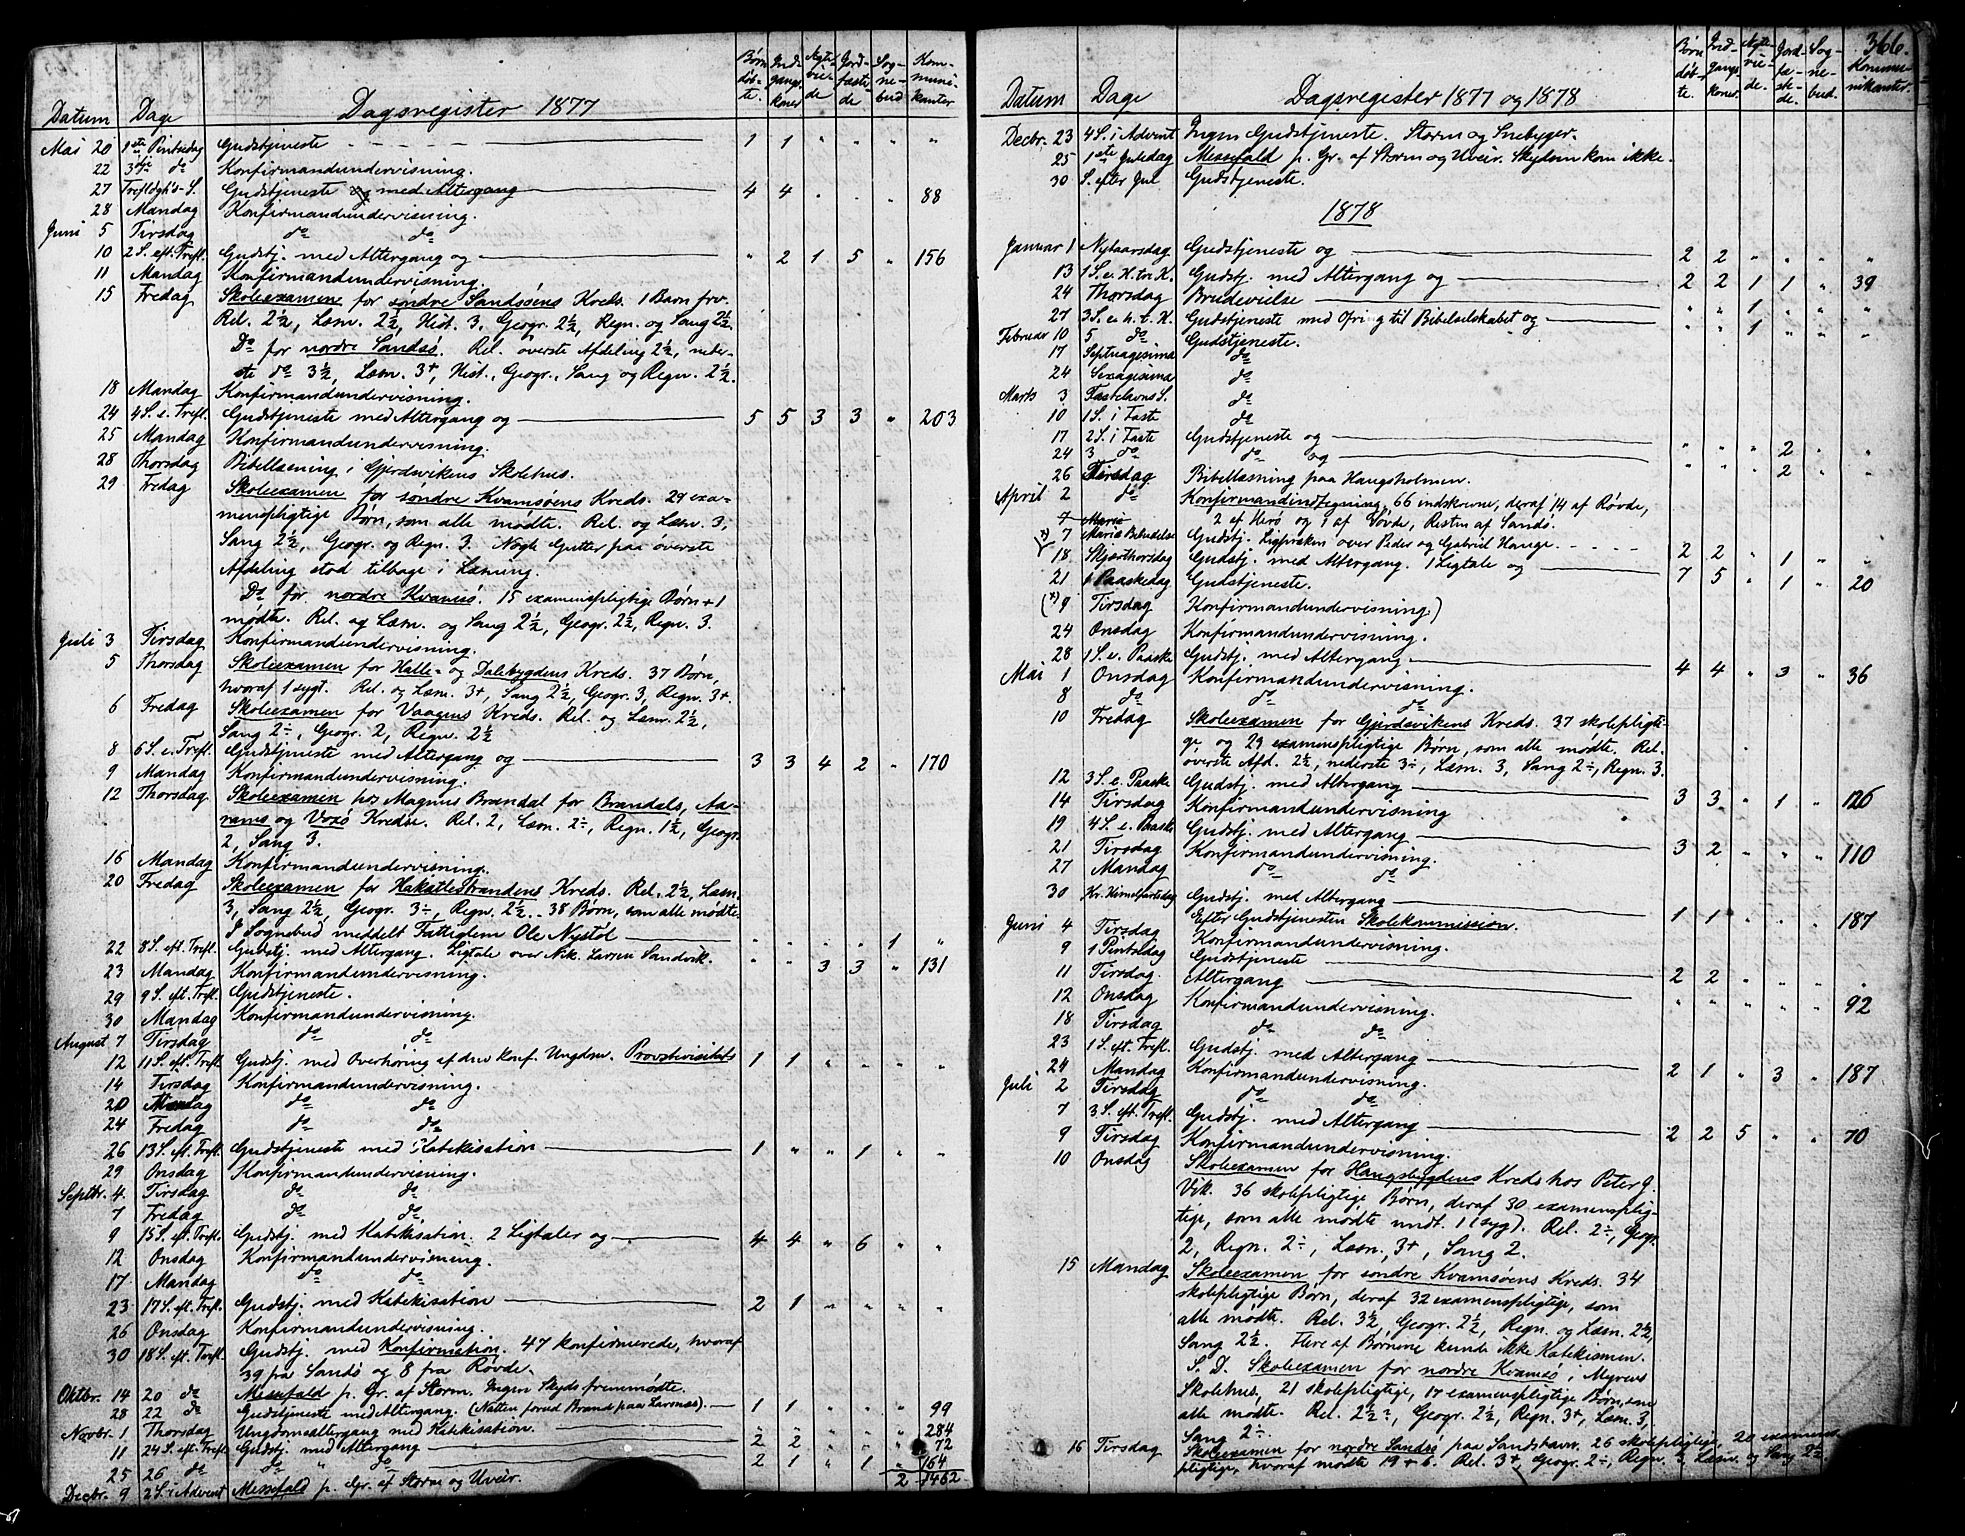 Datum Dage Dagsregister 1877 Børn døb-te. Ind-gangs-koner Nyvi-de Jord-fæste-de Sog-ne-bud Kom-muni-kanter
Mai 20 1ste Pintsedag Gudstjeneste - - - - - 1 1 " " " "
22 3die do Konfirmandundervisning.
27 Trefoldgh's S. Gudstjeneste med Altergang 4 4 . . . 88
28 Mandag Konfirmandundervisning.
Juni 5 Tirsdag do do
10 2 S. eft. Trefl. Gudstj. med Altergang og " 2 1 5 " 156
11 Mandag Konfirmandundervisning.
15 Fredag Skoleexamen for søndre Sandsøens Kreds. 1 Barn frv.
Rel. 2½, Læsn. 2½, Hist. 3, Geogr. 2½, Regn. og Sang 2½.
Do for nordre Sandsø. Rel. øverste Afdeling 2½, neder-
ste do 3½, Læsn. 3+, Hist., Geogr., Sang og Regn. 2½.
18 Mandag Konfirmandundervisning.
24 4 S. e. Trefl. Gudstjeneste med Altergang og 5 5 3 3 " 203
25 Mandag Konfirmandundervisning.
28 Thorsdag Bibellæsning i Gjerdsvikens Skolehus.
29 Fredag Skoleexamen for søndre Kvamsøens Kreds. 29 exa-
menspligtige Børn, som alle mødte. Rel. og Læsn. 3,
Sang 2½, Geogr. og Regn. 3. Nogle Gutter paa øverste
Afdeling stod tilbage i Læsning.
Do for nordre Kvamsø. 15 examenspligtige Børn + 1
mødte. Rel. og Læsn. og Sang 2½, Geogr. 2½, Regn. 3.
Juli 3 Tirsdag Konfirmandundervisning.
5 Thorsdag Skoleexamen for Halle- og Dalebygdens Kreds. 37 Børn,
hvoraf 1 sygt. Rel. og Læsn. 3+, Sang 2½, Geogr. 3, Regn. 3+.
6 Fredag Skoleexamen for Vaagens Kreds. Rel. og Læsn. 2½,
Sang 2÷, Geogr. 2, Regn. 2½
8 6 S. e. Trefl. Gudstjeneste med Altergang og 3 3 4 2 " 170
9 Mandag Konfirmandundervisning.
12 Thorsdag Skoleexamen hos Magnus Brandal for Brandals, Aa-
rams og Voxø Kredse. Rel. 2, Læsn. 2÷, Regn. 1½, Geogr.
2, Sang 3.
16 Mandag Konfirmandundervisning.
20 Fredag Skoleexamen for Hakallestrandens Kreds. Rel. 2½, Læsn.
3, Sang 2½, Geogr. 3÷, Regn. 2½. 38 Børn, som alle mødte.
I Sognebud meddelt Fattiglem Ole Nystøl " " " " 1 "
22 8 S. eft. Trefl. Gudstj. med Altergang. Ligtale over Nik. Larsen Sandvik. " " 3 3 " 131
23 Mandag Konfirmandundervisning.
29 9 S. eft. Trefl. Gudstjeneste.
30 Mandag Konfirmandundervisning.
August 7 Tirsdag do do
12 11 S. eft. Trefl. Gudstj. med Overhøring af den konf. Ungdom. Provstevisitats 1 1 " " " "
14 Tirsdag Konfirmandundervisning.
20 Mandag do do
24 Fredag do do
26 13 S. eft. Trefl. Gudstjeneste med Katekisation 1 " " 1 " "
29 Onsdag Konfirmandundervisning.
Septbr. 4 Tirsdag do do
7 Fredag do do
9 15 S. eft. Trefl. Gudstj. med Katekisation. 2 Ligtaler og 4 4 " 6 " "
12 Onsdag Konfirmandundervisning.
17 Mandag do do
23 17 S. eft. Trefl. Gudstj. med Katekisation 2 1 " " " "
26 Onsdag Konfirmandundervisning.
30 18 S. eft. Trefl. Gudstj. med Konfirmation. 47 konfirmerede, hvoraf
39 fra Sandø og 8 fra Røvde.
Oktbr. 14 20 do Messefald p. Gr. af Storm. Ingen Skyds fremmødte.
28 22 do Gudstjeneste med Altergang. (Natten forud Brand paa Larsnes). 1 1 " " " 99
Novbr. 1 Thorsdag Ungdomsaltergang med Katekisation. " " " " " 284
11 24 S. eft. Trefl. Gudstj. med Altergang 2 2 " " 72
25 26 do do " do 2 1 " 1 " 164
Decbr. 9 2 S. i Advent Messefald p. Gr. af Storm og Uveir. 2 1462
366.
Datum Dage Dagsregister 1877 og 1878 Børn døb-te. Ind-gangs-koner. Nyvi-de. Jord-fæ-ste-de. Sog-ne-bud. Kommu-nikanter.
Decbr. 23 4 S. i Advent Ingen Gudstjeneste. Storm og Snebyger.
25 1ste Juledag Messefald p. Gr. af Storm og Uveir. Skydsen kom ikke.
30 S. efter Jul Gudstjeneste.
1878
Januar 1 Nytaarsdag Gudstjeneste og 2 2 " " " "
13 1 S. e. H. tre K. Gudstj. med Altergang og 2 2 1 1 " 39
24 Thorsdag Brudevielse " " 1 " " "
27 3 S. e. h. t. K. Gudstjeneste med Ofring til Bibelselskabet og " " 1 " " "
Februar 10 5 do Gudstjeneste.
17 Septuagesima do
24 Sexagesima do
Marts 3 Fastelavns S. do
10 1 S. i Faste do
17 2 S. i Faste Gudstjeneste og " " " 2 " "
24 3 do do og " " " 2 " "
26 Tirsdag Bibellæsning paa Haugsholmen.
April 2 do Konfirmandindtegning, 66 indskrevne, deraf 14 af Røvde,
7 Maria 2 af Herø og 1 af Vovde, Resten af Sandø.
7 Mariæ Bebudelse Gudstj. Ligpræken over Peder og Gabriel Hauge. - - - - 2 2 " 1 " "
18 Skjærthorsdag Gudstj. med Altergang. 1 Ligtale og 7 5 " 1 " 20
21 1 Paaskedag Gudstjeneste.
(*) 9 Tirsdag Konfirmandundervisning)
24 Onsdag Konfirmandundervisning.
28 1 S. e. Paaske Gudstj. med Altergang 4 4 " 3 " 36
Mai 1 Onsdag Konfirmandundervisning.
8 do do do
10 Fredag Skoleexamen for Gjerdsvikens Kreds. 37 skolepligti-
ge og 29 examenspligtige Børn, som alle mødte. Rel.
øverste Afd. 2½, nederste 3÷, Læsn. 3, Sang 2÷, Regn. 3.
12 3 S. e. Paaske Gudstj. med Altergang 3 3 " 1 " 126
14 Tirsdag Konfirmandundervisning
19 4 S. e. Paaske Gudstj. med Altergang 3 2 " " " 110
21 Tirsdag Konfirmandundervisning.
27 Mandag do do
30 Kr. Himmelfartsdag Gudstj. med Altergang 1 1 " " " 187
Efter Gudstjenesten Skolekommission.
Juni 4 Tirsdag Konfirmandundervisning.
9 1 Pintsedag Gudstjeneste 2 2 " " " "
11 Tirsdag. Altergang " " " " " 92
12 Onsdag Konfirmandundervisning.
18 Tirsdag do do
23 1 S. eft. Trefl. Gudstj. med Altergang 2 1 " 3 " 187
24 Mandag Konfirmandundervisning.
Juli 2 Tirsdag do do
7 3 S. eft. Trefl. Gudstj. med Altergang 2 2 5 " " 70
9 Tirsdag Konfirmandundervisning.
10 Onsdag Skoleexamen for Haugsbygdens Kreds hos Peter J.
Vik. 36 skolepligtige Børn, deraf 30 examensplig-
tige, som alle mødte undt. 1 (syg). Rel. 2÷, Geogr.
2, Regn. 2÷, Læsn., 3+, Sang 2.
15 Mandag Skoleexamen for søndre Kvamsøens Kreds. 34
skolepligtige Børn, deraf 32 examenspligtige, som
alle mødte. Rel. 3½, Geogr. 2½, Regn. og Læsn. 2½,
Sang 2½. Flere af Børnene kunde ikke Katekismen.
S. D. Skoleexamen for nordre Kvamsø, Myrens
Skolehus, 21 skolepligtige, 17 examenspligtige Børn, som
alle mødte. Rel. 2½, Geogr. 2½, Regn. 3+, Læsn. 3,
Sang 2÷.
16 Tirsdag Skoleexamen for nordre Sandsø paa Sandshavn. 26 skolepligtige, 20 examens-
pligtige, hvoraf mødte 19 + 6. Rel. 3+, Geogr. 2÷, Regn. 3, Læsn. og Sang 2½.